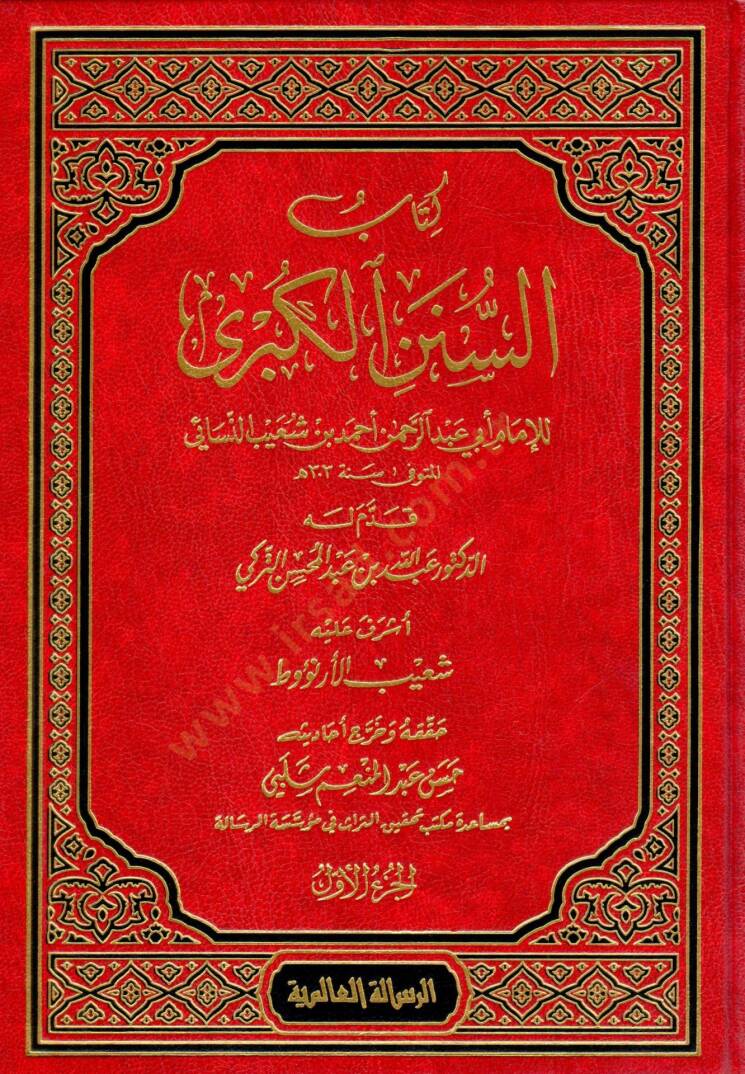 كِتَابُ
السُّنَنِ ٱلْكُبْرَى
للإمام أبي عبد الرحمن أحمد بن شعيب النسائي
المتوفى سنة ٣٠٣ هـ
قدّم له
الدكتور عبد الله بن عبد المحسن التركي
أشرف عليه
شعيب الأرنؤوط
حققه وخرج أحاديثه
حسن عبد المنعم شلبي
بمساعدة مكتب تحقيق التراث في مؤسسة الرسالة
الجزء الأول
الرسالة العالمية